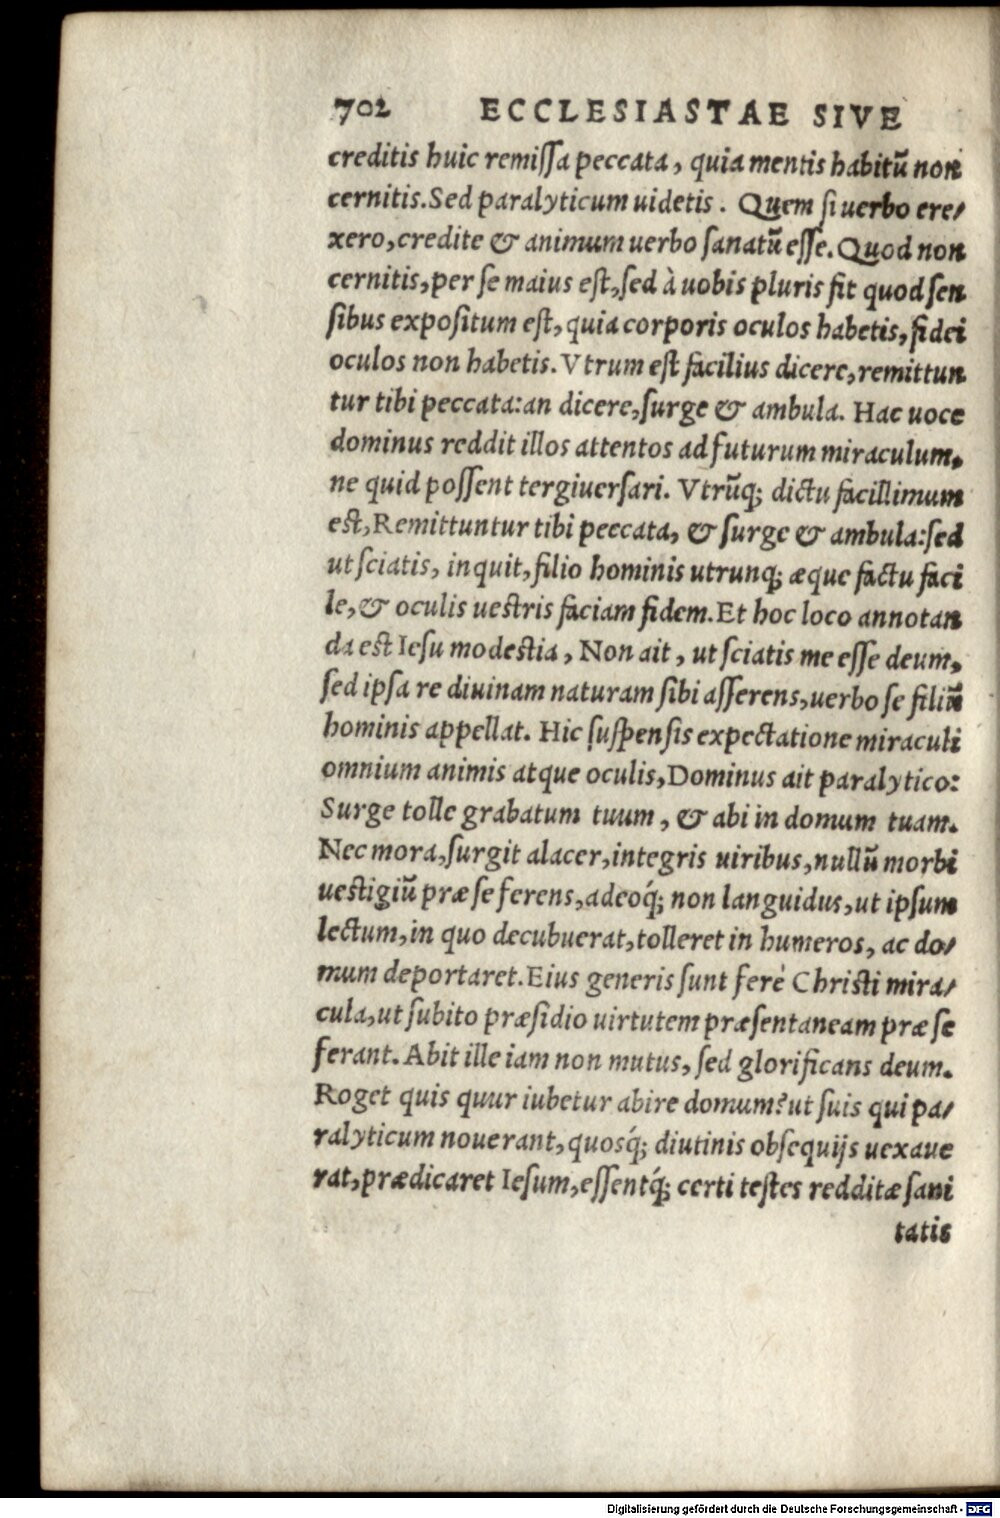 702 ECCLESIASTAE SIVE
creditis huic remiſſa peccata, quia mentis habitū non
cernitis. Sed paralyticum uidetis. Quem ſi uerbo ere/
xero, credite & animum uerbo ſanatū eſſe. Quod non
cernitis, per ſe maius eſt, ſed à uobis pluris fit quod ſen
ſibus expoſitum eſt, quia corporis oculos habetis, fidei
oculos non habetis. Vtrum eſt facilius dicere, remittun
tur tibi peccata: an dicere, ſurge & ambula. Hac uoce
dominus reddit illos attentos ad futurum miraculum,
ne quid poſſent tergiuerſari. Vtrūq; dictu facillimum
eſt, Remittuntur tibi peccata, & ſurge & ambula: ſed
ut ſciatis, inquit, filio hominis utrunq; æque factu faci
le, & oculis ueſtris faciam fidem. Et hoc loco annotan
da eſt Ieſu modeſtia, Non ait, ut ſciatis me eſſe deum,
ſed ipſa re diuinam naturam ſibi aſſerens, uerbo ſe filiū
hominis appellat. Hic ſuſpenſis expectatione miraculi
omnium animis atque oculis, Dominus ait paralytico:
Surge tolle grabatum tuum, & abi in domum tuam.
Nec mora, ſurgit alacer, integris uiribus, nullū morbi
ueſtigiū præ ſe ferens, adeoq́; non languidus, ut ipſum
lectum, in quo decubuerat, tolleret in humeros, ac do/
mum deportaret. Eius generis ſunt ferè Chriſti mira/
cula, ut ſubito præſidio uirtutem præſentaneam præ ſe
ferant. Abit ille iam non mutus, ſed glorificans deum.
Roget quis quur iubetur abire domum? ut ſuis qui pa/
ralyticum nouerant, quosq́; diutinis obſequijs uexaue
rat, prædicaret Ieſum, eſſentq́; certi teſtes redditæ ſani
tatis
Digitalisierung gefördert durch die Deutsche Forschungsgemeinschaft - DFG